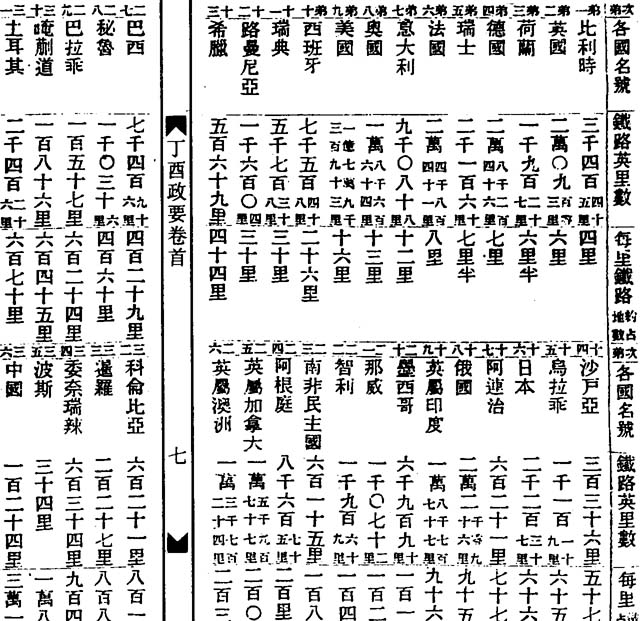 次弟 各國名號 鐵路英里數 每里鐵路約占地數
弟一 比利時 三千四百四十五里 四里
弟二 英國 二萬〇九百零三里 六里
弟三 荷蘭 一千九百二十里 六里半
弟四 德國 二萬八千二百四十六里 七里
弟五 瑞士 二千一百六十里 七里半
弟六 法國 二萬四千八百四十一里 八里
弟七 意大利 九千〇八十八里 十二里
弟八 奧國 一萬八千六百六十四里 十三里
弟九 美國 一億七萬九千三百九十三里 十六里
弟十 西班牙 七千五百四十八里 二十六里
十一 瑞典 五千七百八十三里 三十里
十二 路曼尼亞 一千六百〇四里 三十里
十三 希臘 五百六十九里 四十四里
次弟 各國名號 鐵路英里數 每里
十四 沙戶亞 三百三十六里 五十七
十五 烏拉乖 一千一百一十九里 六十五
十六 日本 二千二百三十七里 六十六
十七 阿連治 六百二十一里 七十七
十八 俄國 九十五
十九 英屬印度 一萬八千七百七十七里 九十六
二十 墨西哥 六千九百九十九里 一百一
二一 那威 一千〇七十二里 一百二
二二 智利 一千九百六十九里 一百四
二三 南非民主國 六百一十五里 一百八
二四 阿根庭 八千六百七十五里 二百里
二五 英屬加拿大 二百〇
二六 英屬澳洲 一萬三千七百二十四里 二百三
丁酉政要卷首 七
二七 巴西 七千四百九十六里 四百二十九里
二八 秘魯 一千〇三十六里 四百六十里
二九 巴拉乖 一百五十七里 六百二十四里
三十 唵蒯道 一百八十六里 六百四十五里
三一 土耳其 二千四百二十六里 六百七十里
三二 科侖比亞 六百二十一里 八百一
三三 暹羅 二百二十七里 八百八
三四 委奈瑞辣 六百三十四里 九百四
三五 波斯 三十四里 一萬八
三六 中國 一百二十四里 三萬一